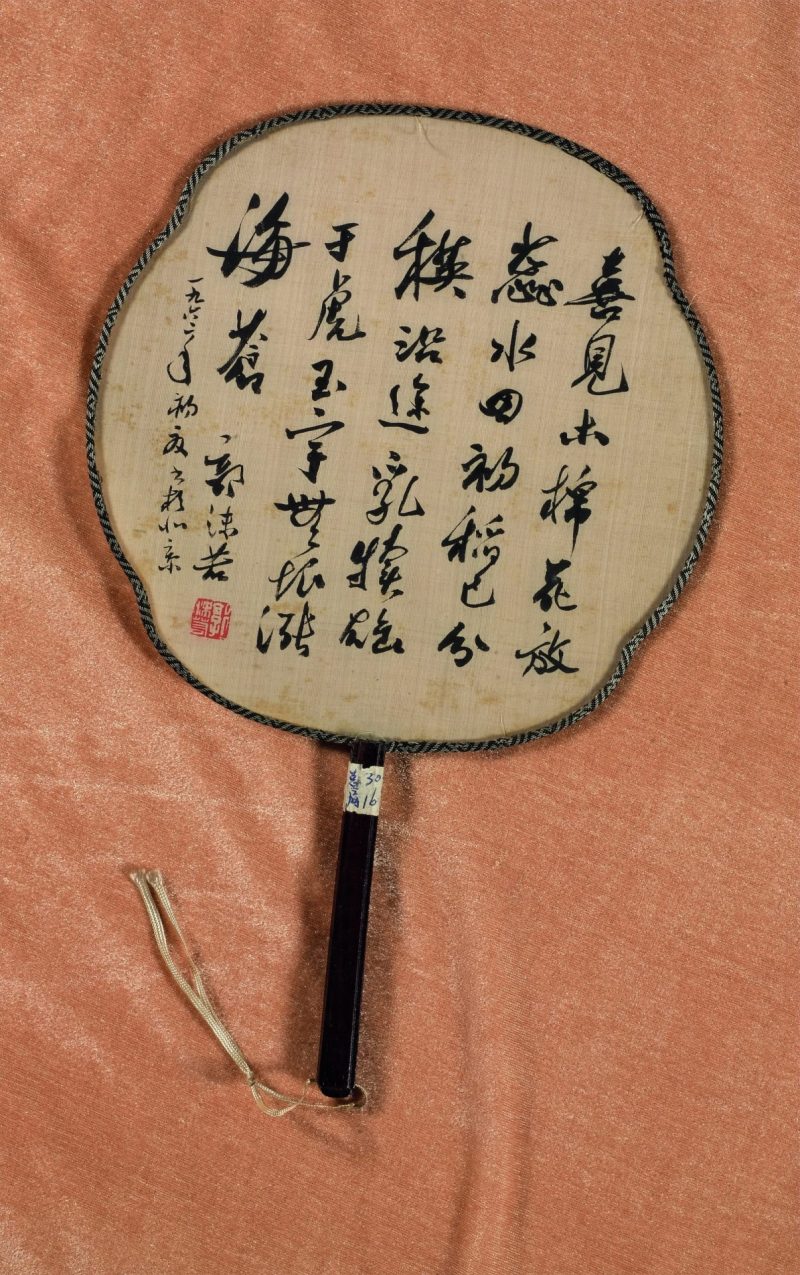 喜見木棉花放
蕊水田初稻已分
秧沿途乳犢雄
于虎玉宇無垠漲
海蒼
郭沫若
一九六二年初夏书於北京
郭沫若
30
16